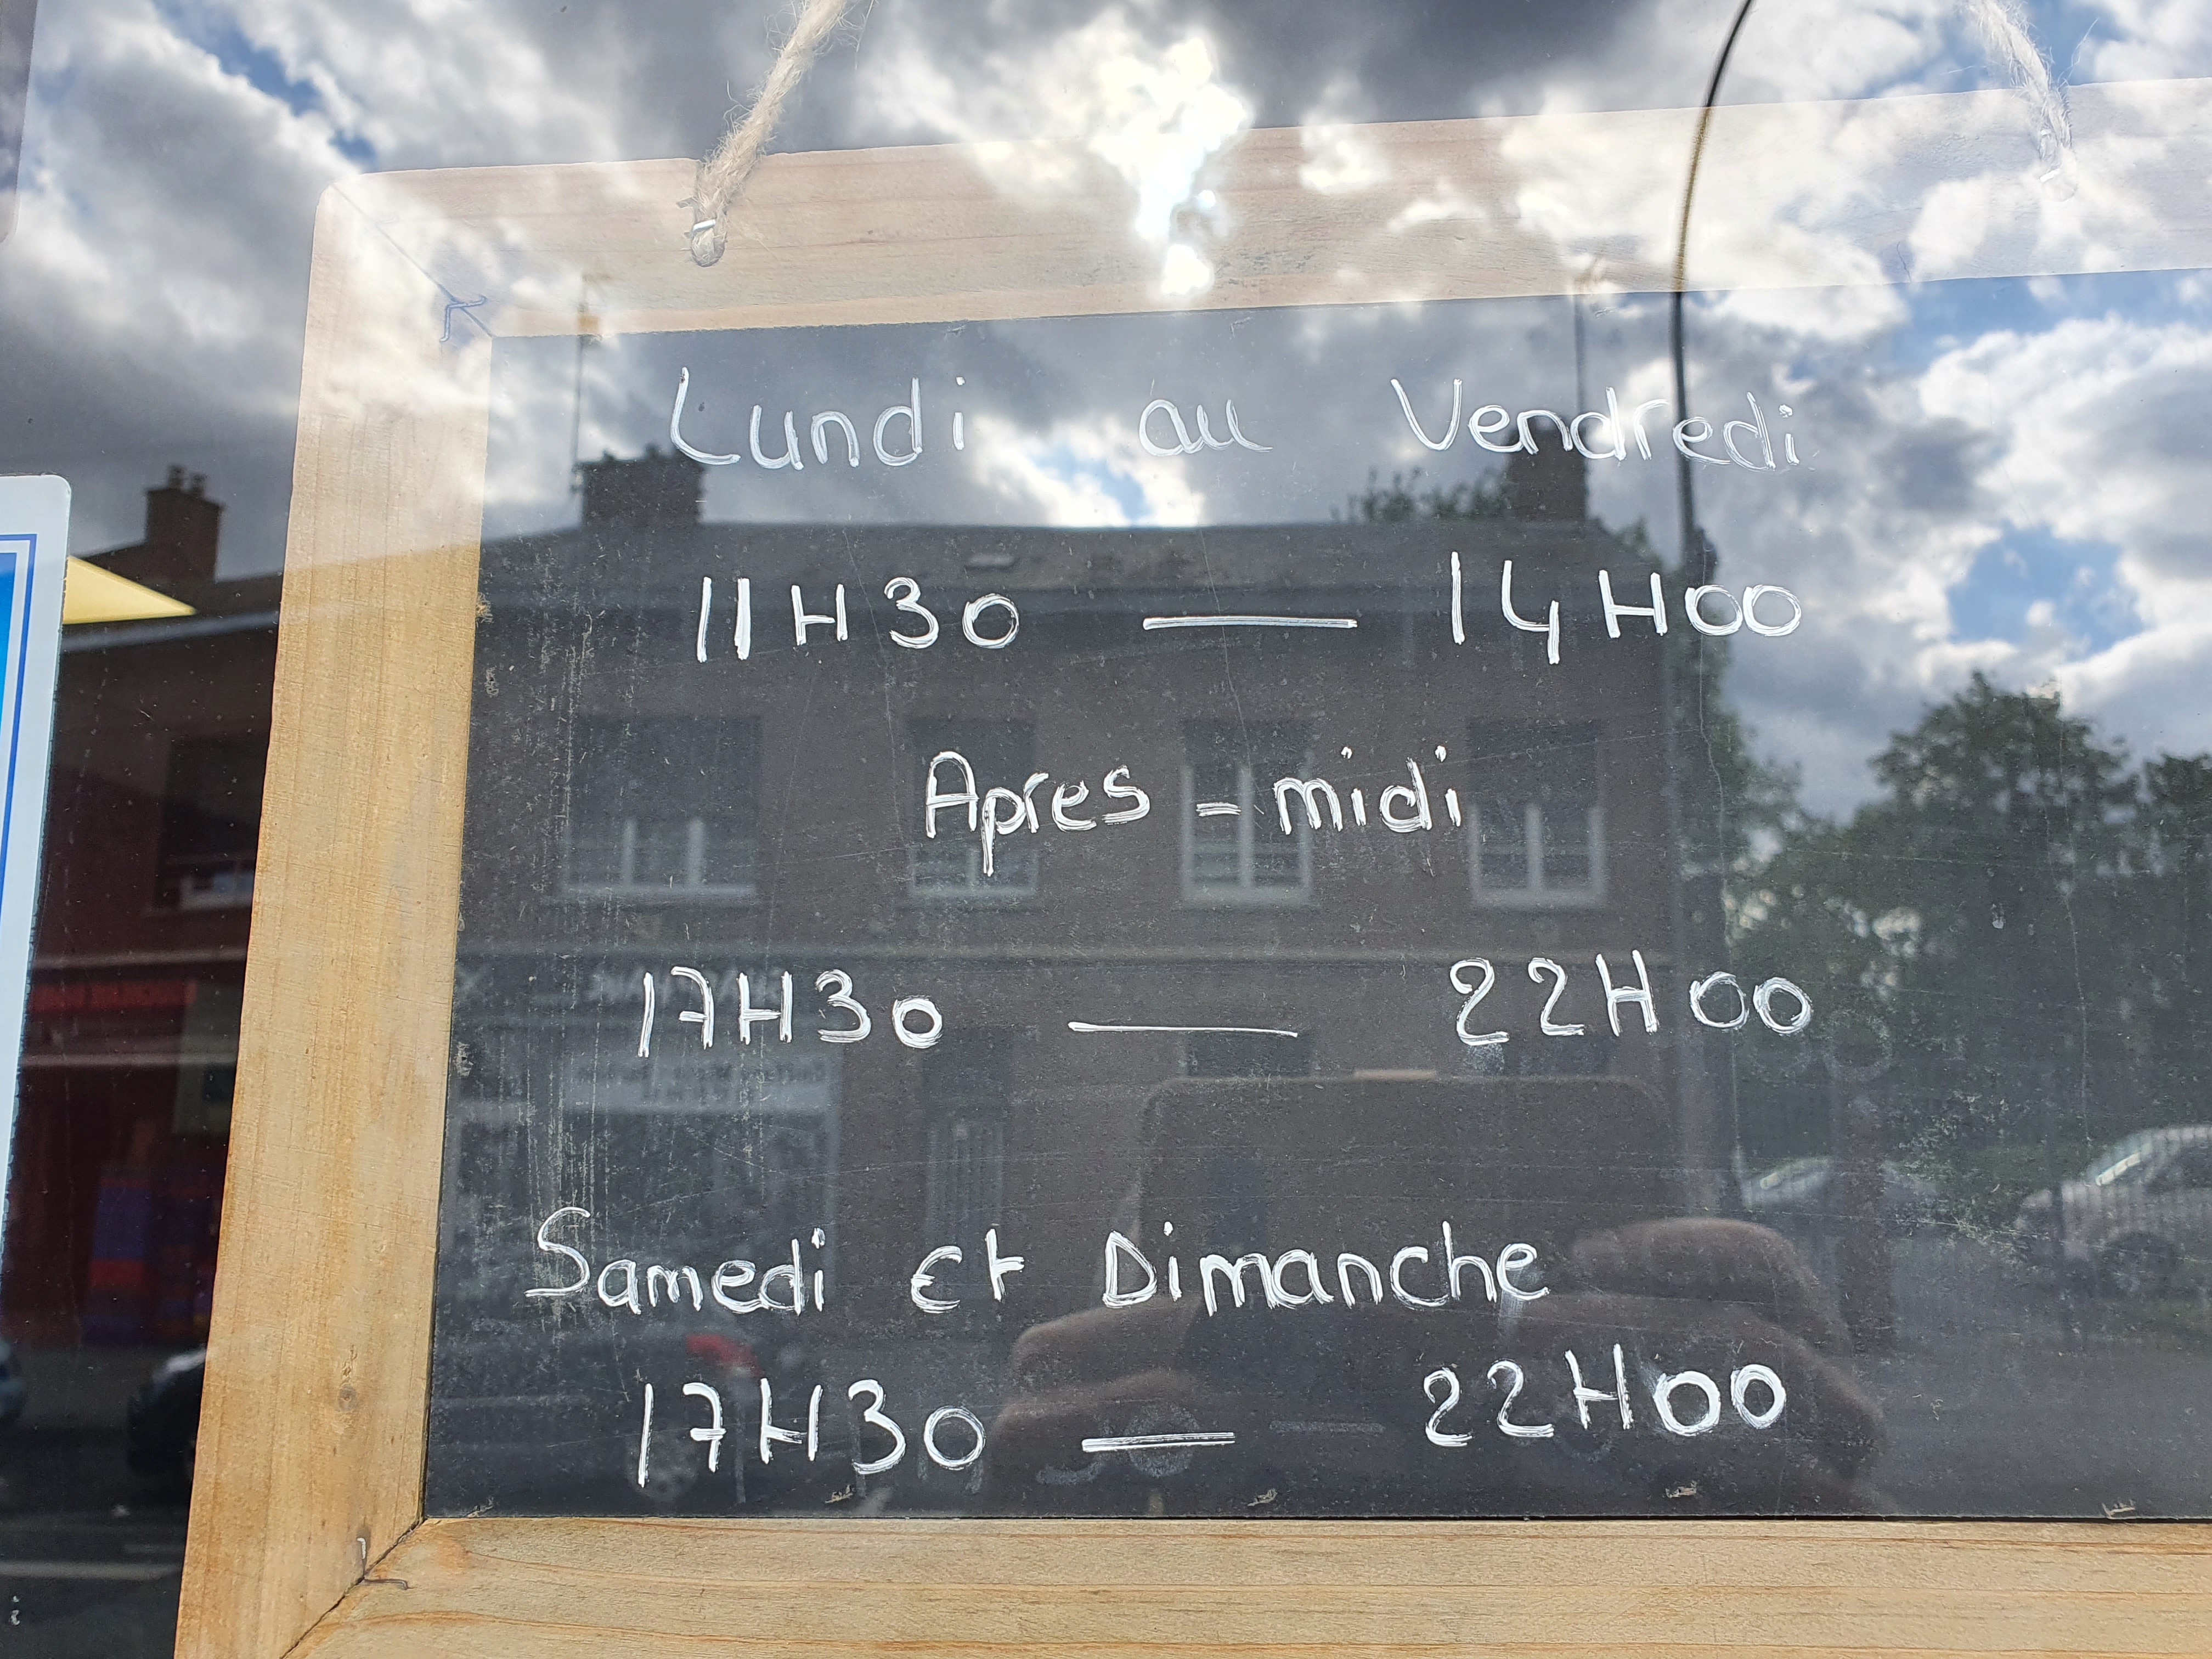 Lundi au Vendredi
11H30 — 14H00
Apres-midi
17H30 — 22H00
Samedi et Dimanche
17H30 — 22H00